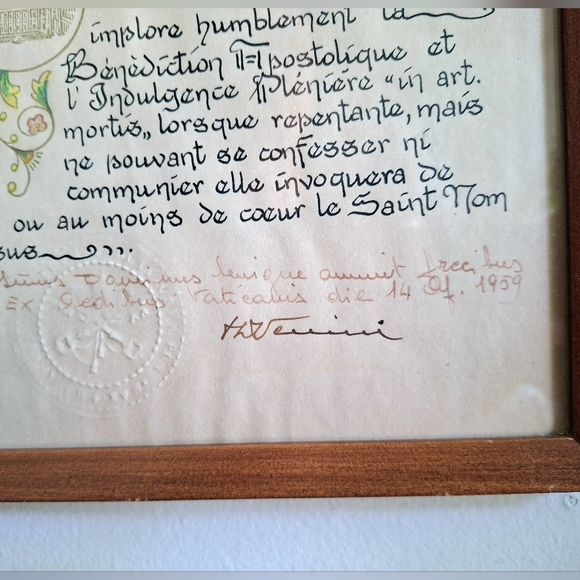 implore humblement la
Bénédiction Apostolique et
l'Indulgence Plénière "in art.
mortis„ lorsque repentante, mais
ne pouvant se confesser ni
communier elle invoquera de
ou au moins de cœur le Saint Nom
sus
Dominus benigne annuit precibus
Ex Aedibus Vaticanis die 14 1959